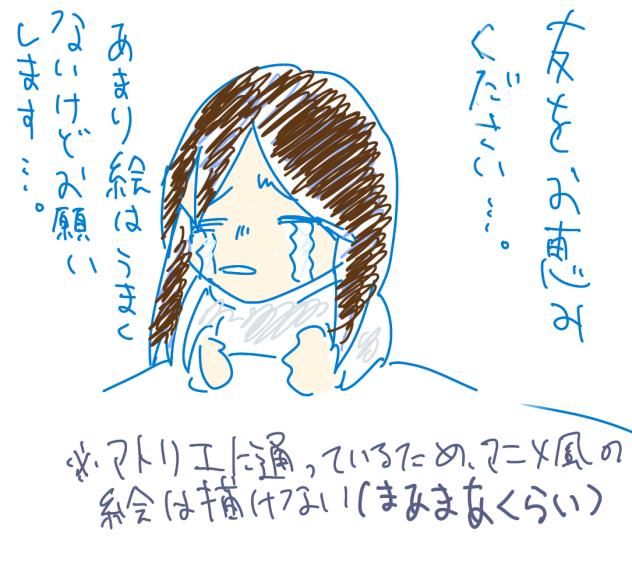 友をお恵み
ください…。
あまり絵はうまく
ないけどお願い
します…。
※アトリエに通っているため、アニメ風の
絵は描けない(まあまあくらい)